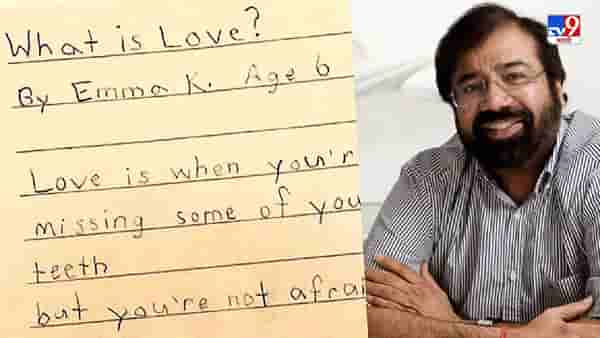 What is Love?
By Emma K. Age 6
Love is when you'r
missing some of you
teeth
but you're not afrai
TV9